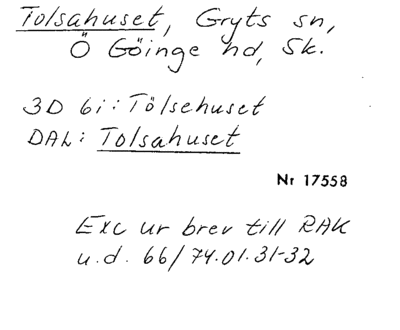 Tolsahuset, Gryts sn,
Ö Göinge hd, Sk.
3D 6i: Tölsehuset
DAL: Tolsahuset
Nr 17558
Exc ur brev till RAK
u.d. 66/74.01.31-32